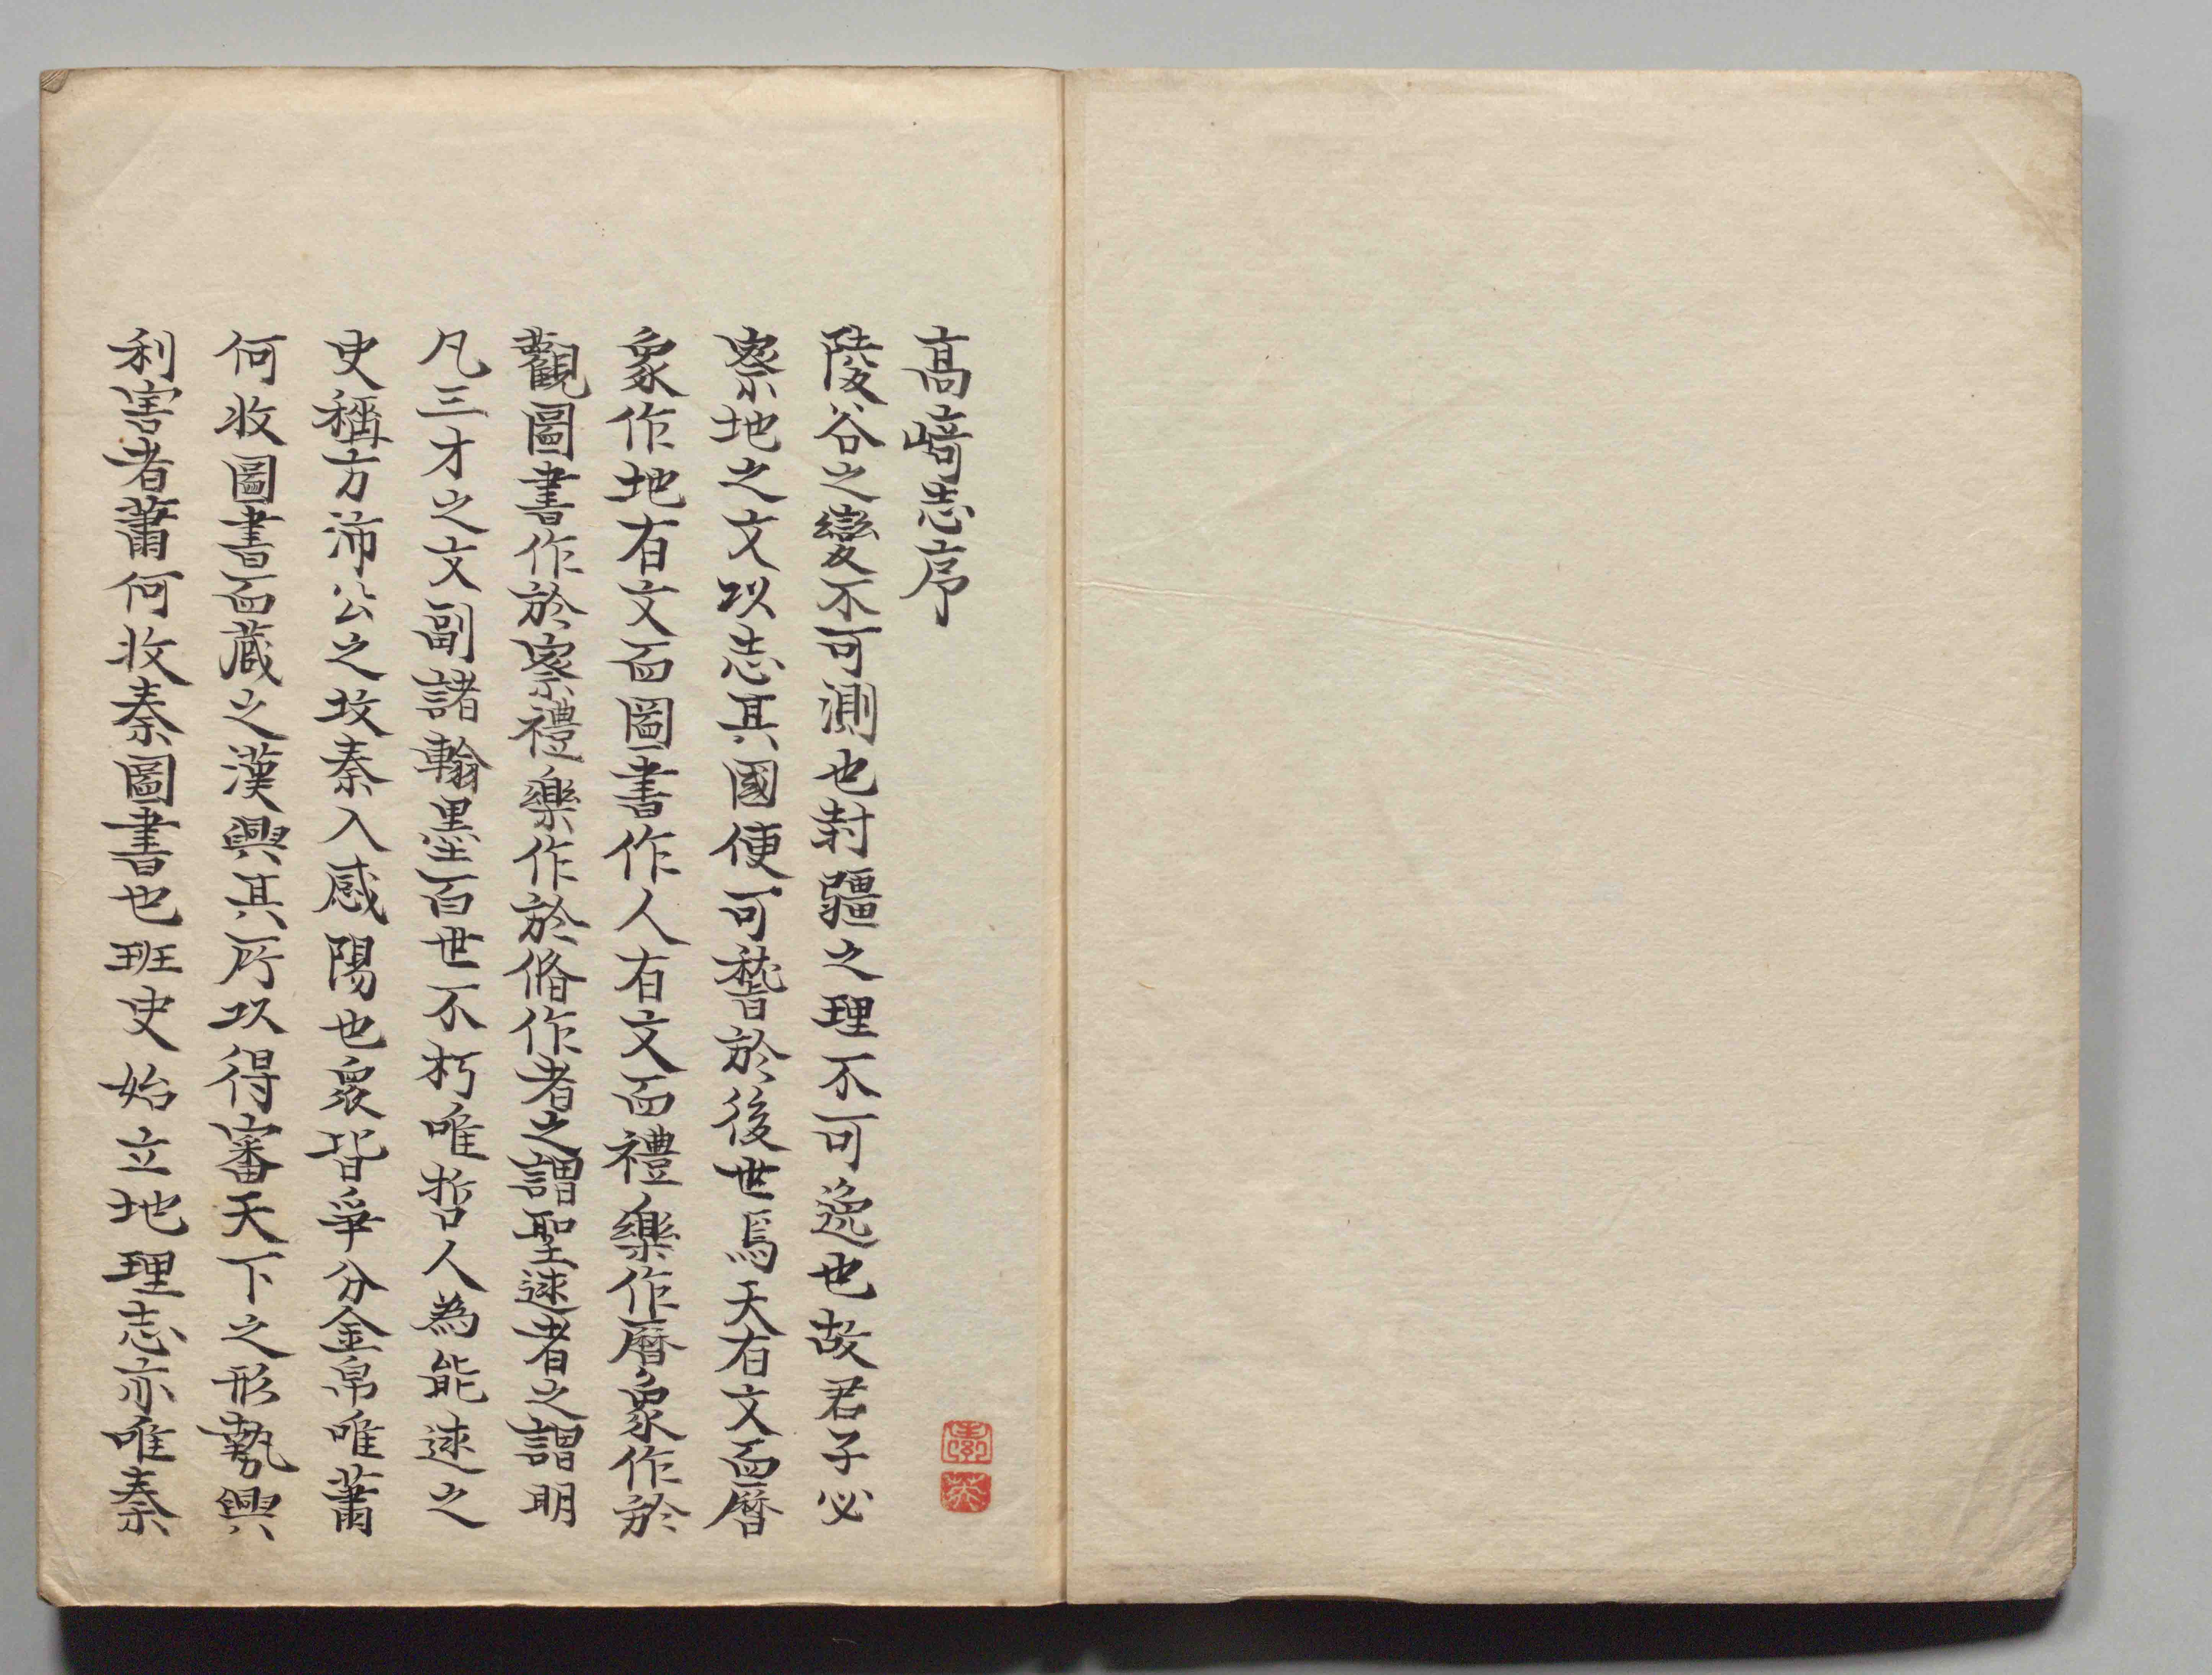 髙﨑志序
陵谷之變不可測也封疆之理不可逸也故君子必
察地之文以志其國使可稽於後世焉天有文而曆
象作地有文而圖書作人有文而禮樂作曆象作於
觀圖書作於察禮樂作於脩作者之謂聖述者之謂明
凡三才之文副諸翰墨百世不朽唯哲人為能述之
史稱方沛公之攻秦入咸陽也衆皆爭分金帛唯蕭
何收圖書而蔵之漢興其所以得審天下之形勢與
利害者蕭何收秦圖書也班史始立地理志亦唯秦